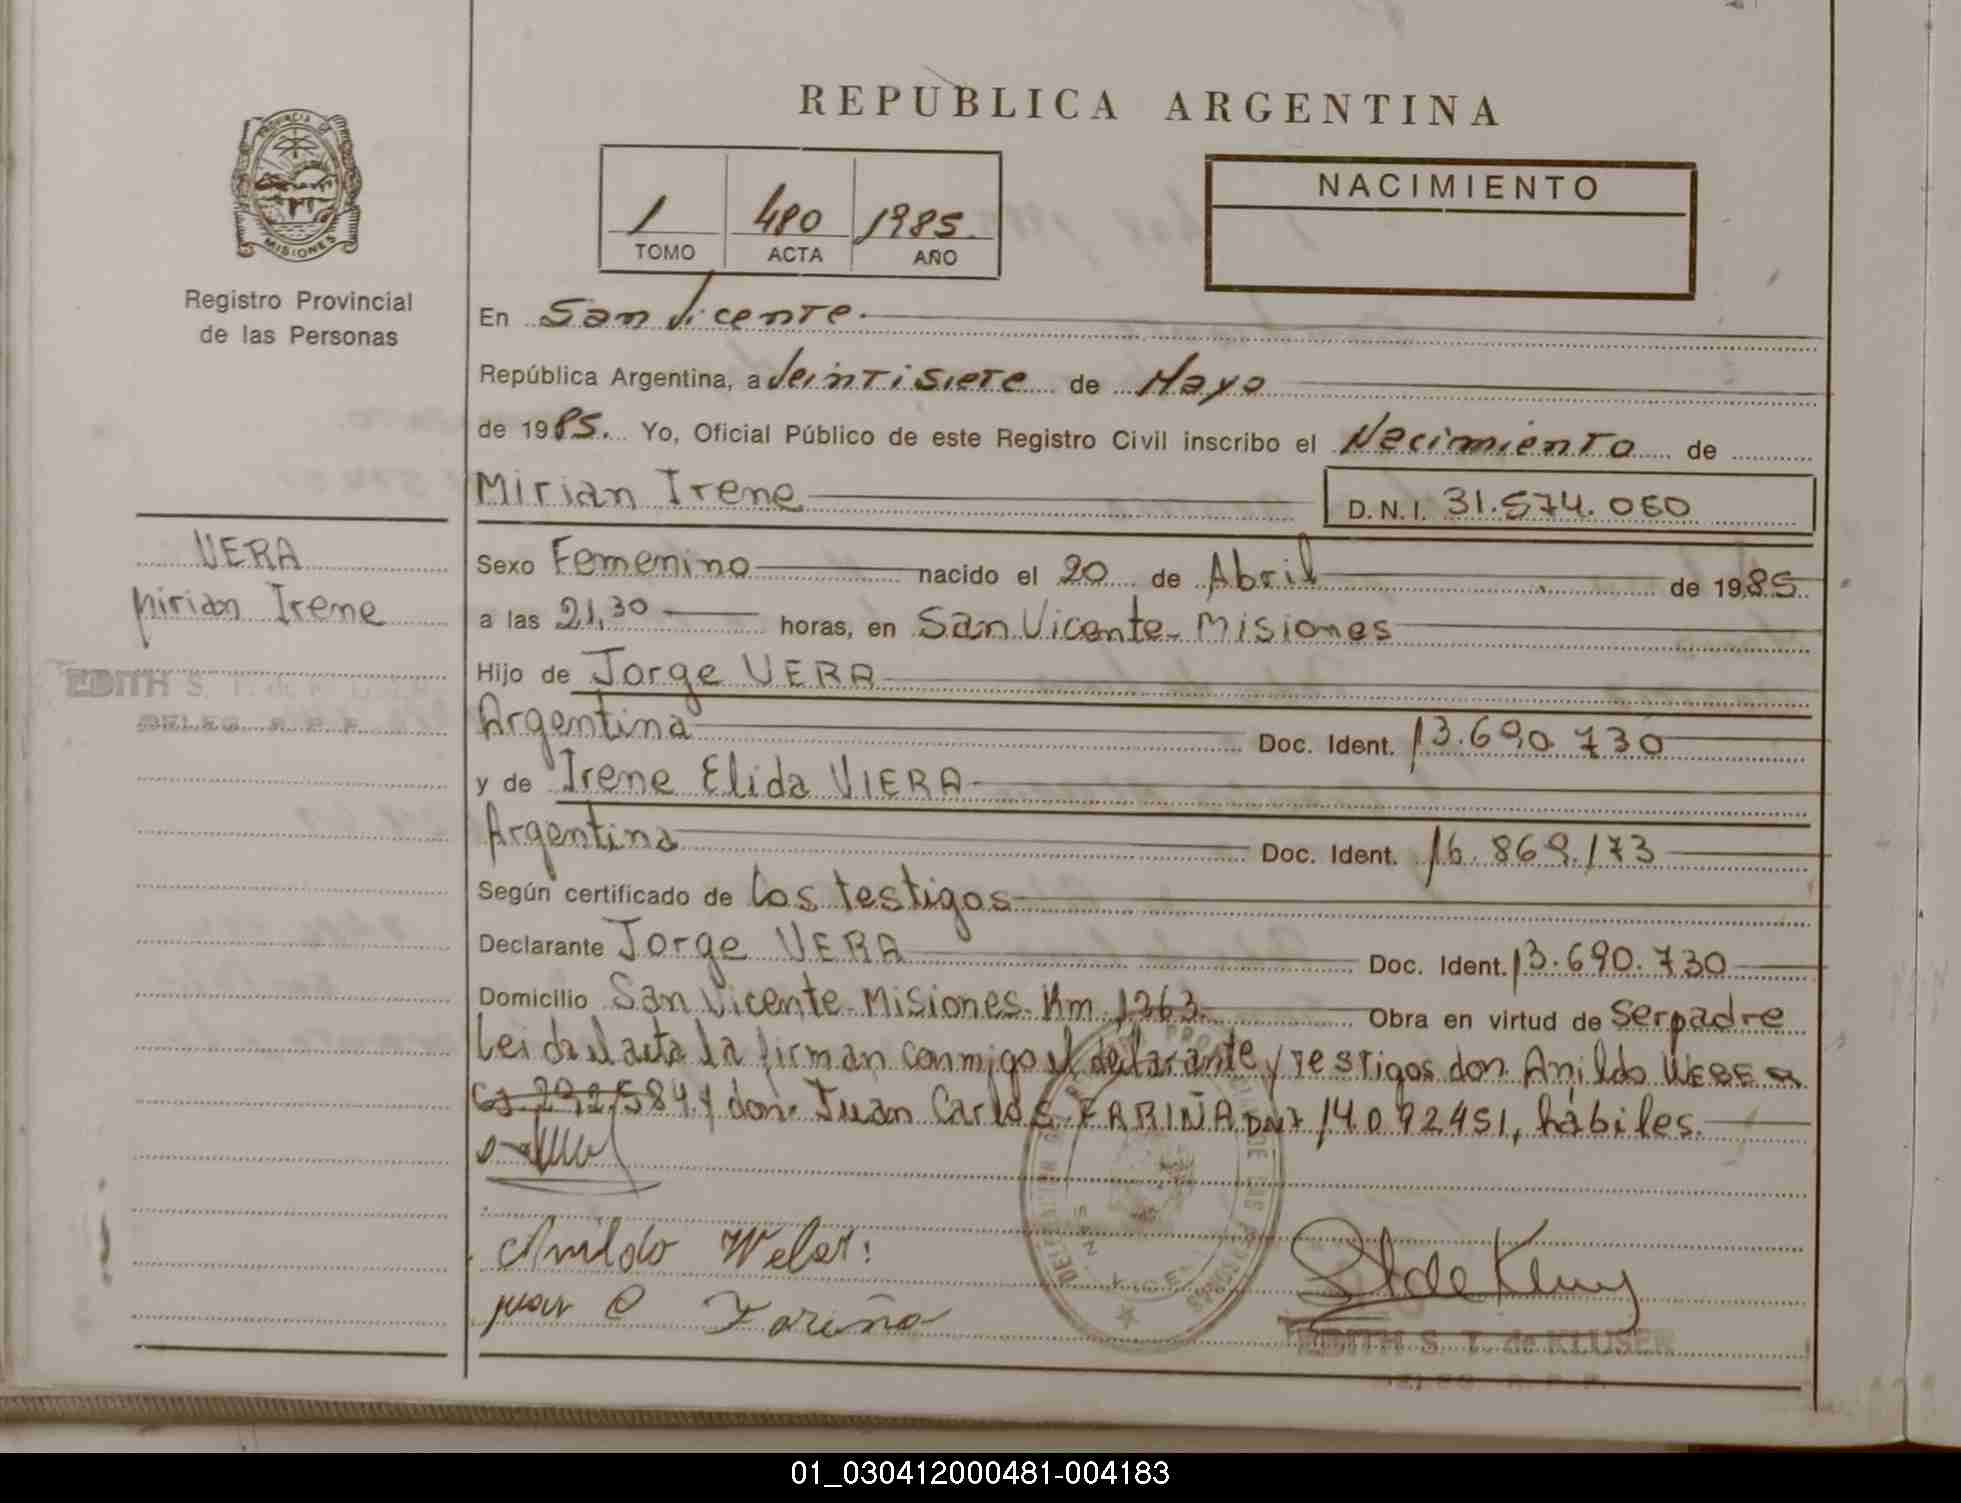 REPUBLICA ARGENTINA
PROVINCIA DE
MISIONES
Registro Provincial
de las Personas
1 480 1985
TOMO ACTA AÑO
NACIMIENTO
En San Vicente
República Argentina, a Veintisiete de Mayo
de 1985. Yo, Oficial Público de este Registro Civil inscribo el Nacimiento de
Mirian Irene D.N.I. 31.574.060
VERA
Mirian Irene
Sexo Femenino nacido el 20 de Abril de 1985
a las 21,30 horas, en San Vicente - Misiones
Hijo de Jorge VERA
Argentina Doc. Ident. 13.690.730
y de Irene Elida VIERA
Argentina Doc. Ident. 16.869.173
Según certificado de Los testigos
Declarante Jorge VERA Doc. Ident. 13.690.730
Domicilio San Vicente - Misiones. Km 1263 Obra en virtud de Ser padre
Leida el acta la firman conmigo el declarante y testigos don Anildo WEBER
292584 y don Juan Carlos FARIÑA DNI 14092451, hábiles.
Anildo Weber
Juan C Fariña
EDITH S. T. de KLUSER
01_030412000481-004183